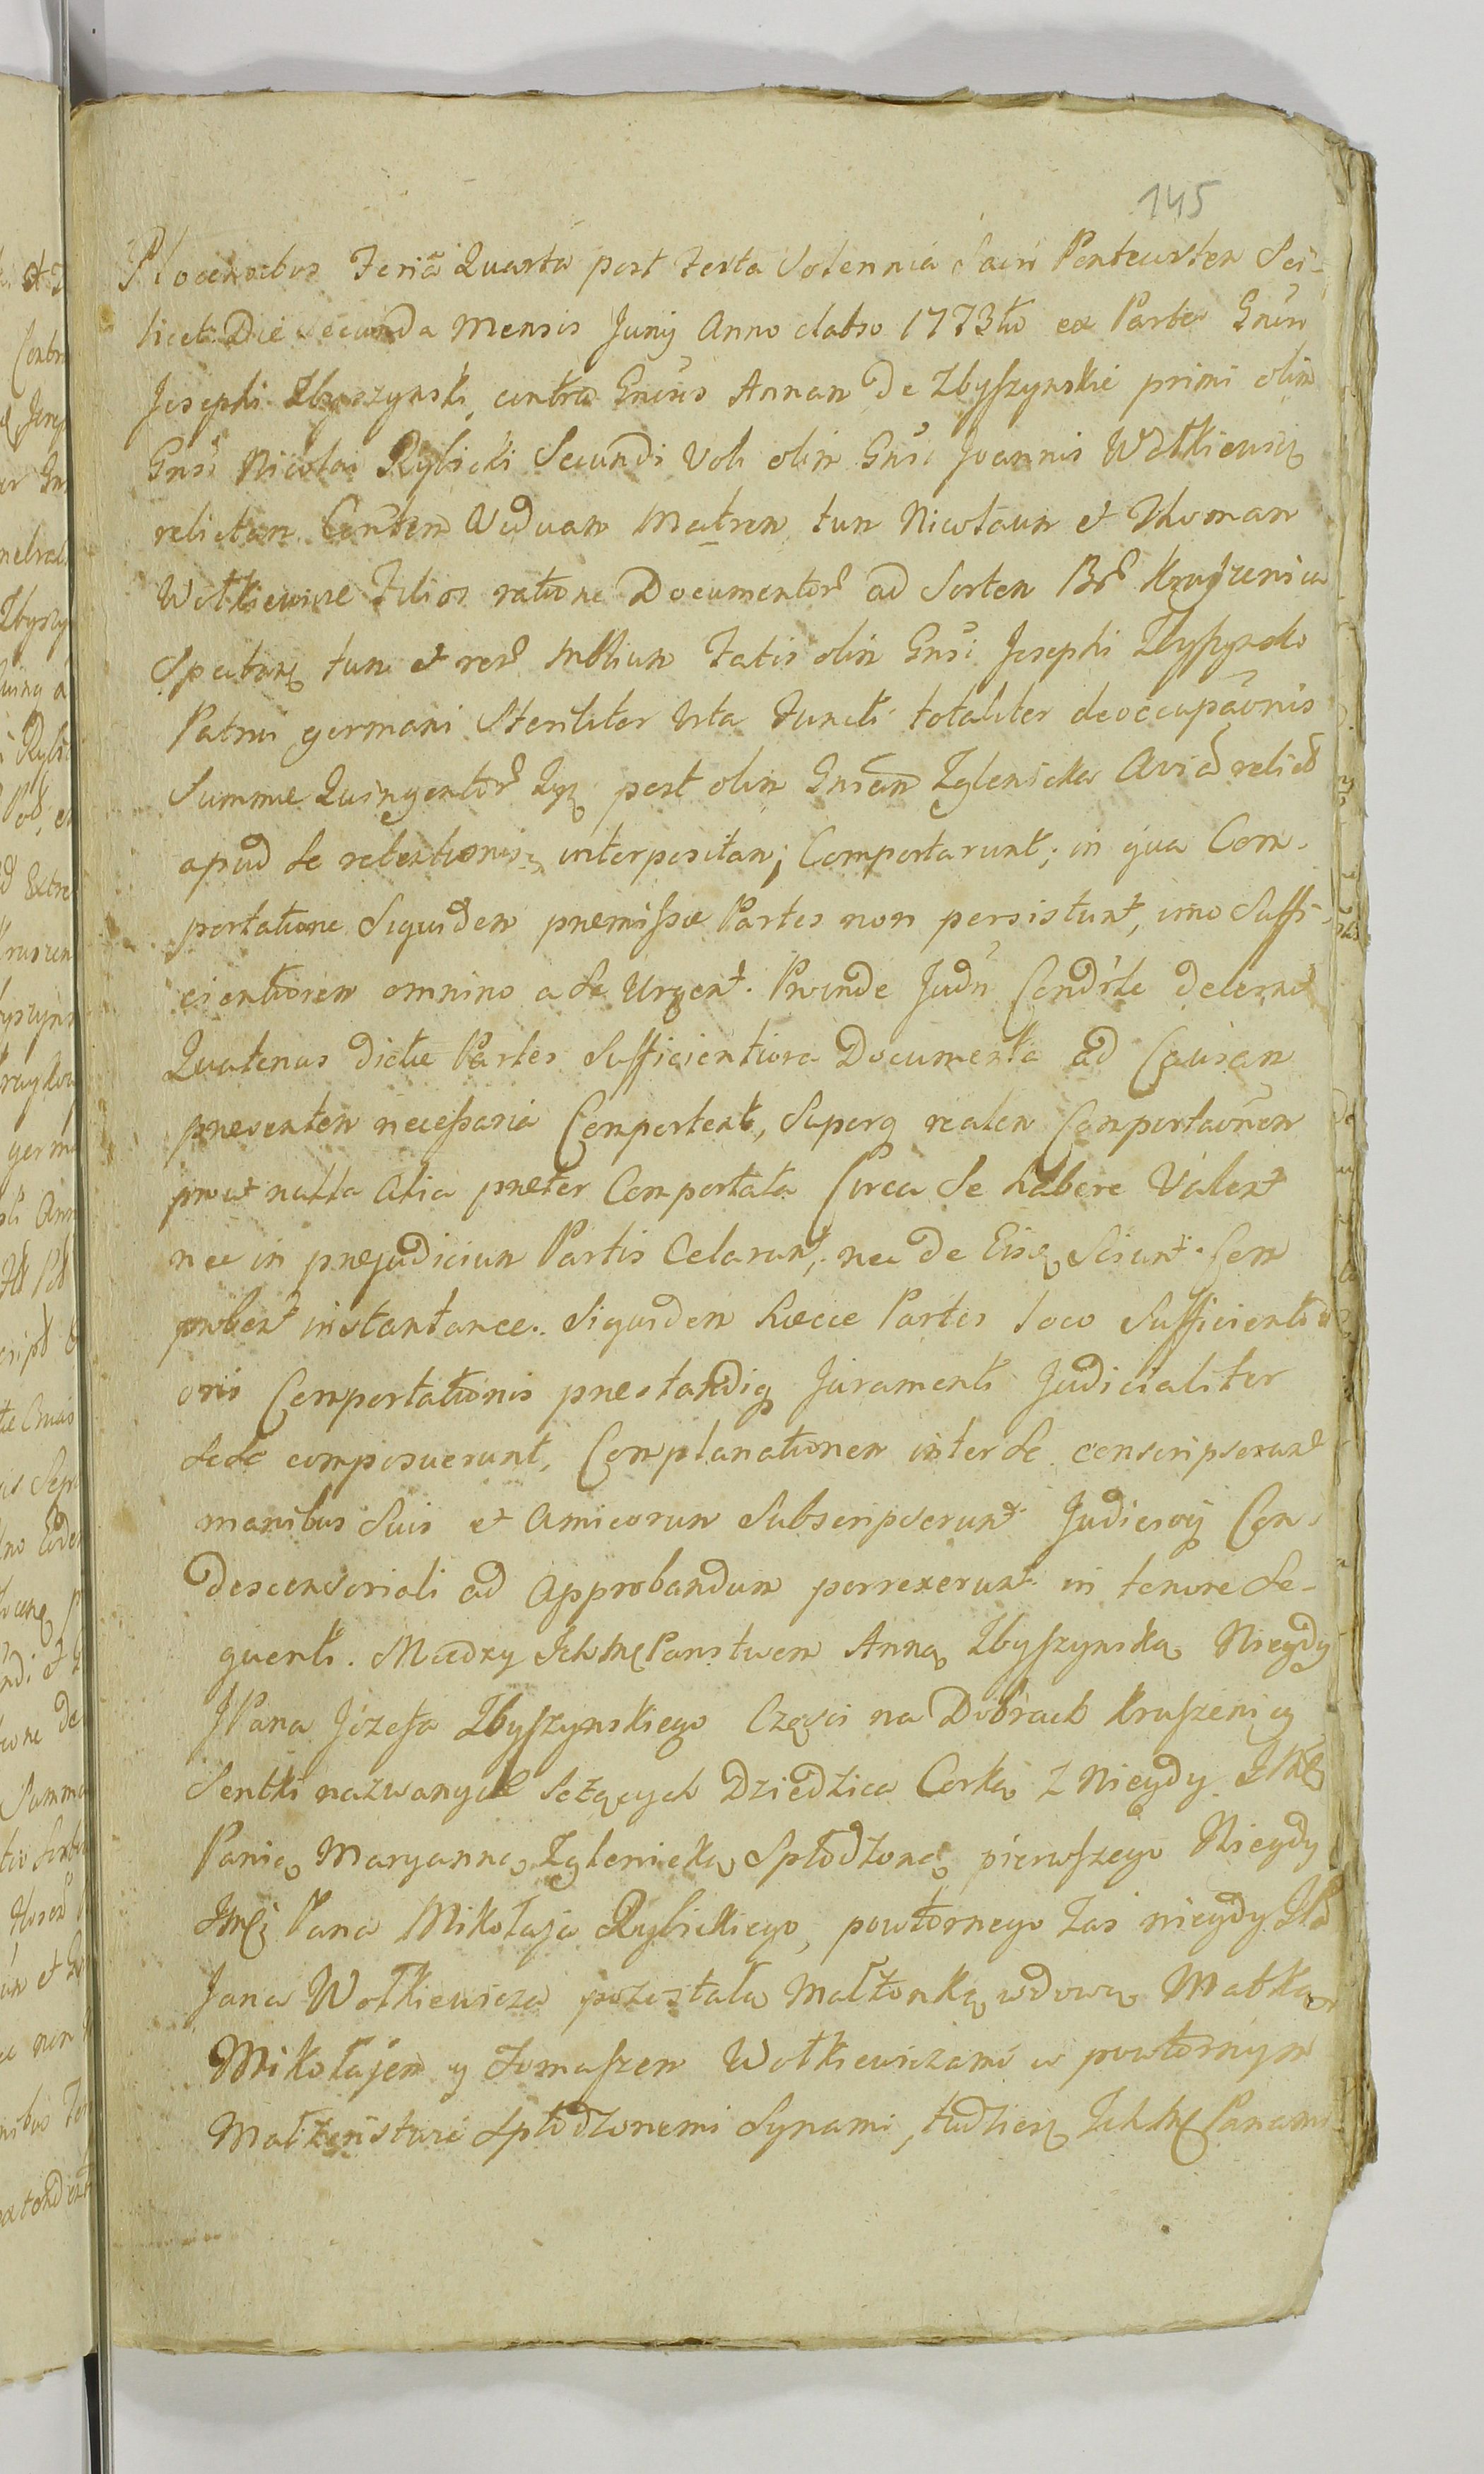 145
Plocensibus Feria Quarta post Festa Solennia Sacri Pentecosten Sci-
licet Die Secunda Mensis Junij Anno elapso 1773tio ex Parte Gnsi
Josephi Zbyszynski, contra Gnosis Annam De Zbyszynskie primi olim
Gnsi Nicolai Rybicki Secundi Voti olim Gnsi Joannis Wołkiewicz
relictam Consten Viduam Matrem, tum Nicolaum et Thomam
Wołkiewicze Filios ratione Documentor ad Sortem Br
Spectan tum et rer Mblium Fatis olim Gnsi Josephi Zbyszynski
Patrui germani Steriliter Vita Functi totaliter deoccupaonis
Summæ Quingentor post olim Gnsam Zglenicka Avia relict
apud Se retentionis interpositam; Comportarunt; in qua Com-
portatione Siquidem præmissæ Partes non persistunt, imo Suffi-
cientiorem omnino a Se Urgent. Proinde Judm Condrle decernit
Quatenus dictæ Partes Sufficientiora Documenta ad Causam
præsentem necessaria Comportent, Superq realem Comportaonem
prout nulla Alia præter Comportata Circa Se habere Valent
nec in præjudicium Partis Celarunt, nec de Eisq Sciunt. Com
probent instantanee. Siquidem hæcce Partes loco Sufficienti
oris Comportationis præstandiq Juramenti Judicialiter
Sese composuerunt, Complanationem inter Se conscripserunt
manibus Suis et Amicorum Subscripserunt Judicioq Con-
descensoriali ad Approbandum porrexerunt in tenore Se-
quenti. Miedzy Ichmc Panstwem Anną Zbyszynską Niegdy
JPana Józefa Zbyszynskiego Częsci na Dobrach Kruszenicy
Sentki nazwanych leżących Dziedzica Corką z Niegdy Jmc
Panią Maryanną Zglenicką Spłodzoną, pierwszego Niegdy
Jmci Pana Mikołaja Rybickiego, powtornego zas niegdy JP
Jana Wołkiewicza pozostałą Małżonką wdową Matką
Mikołajem y Tomaszem Wołkiewiczami w powtornym
Małżeństwie Spłodzonemi Synami, tudziesz Ichmc Panami